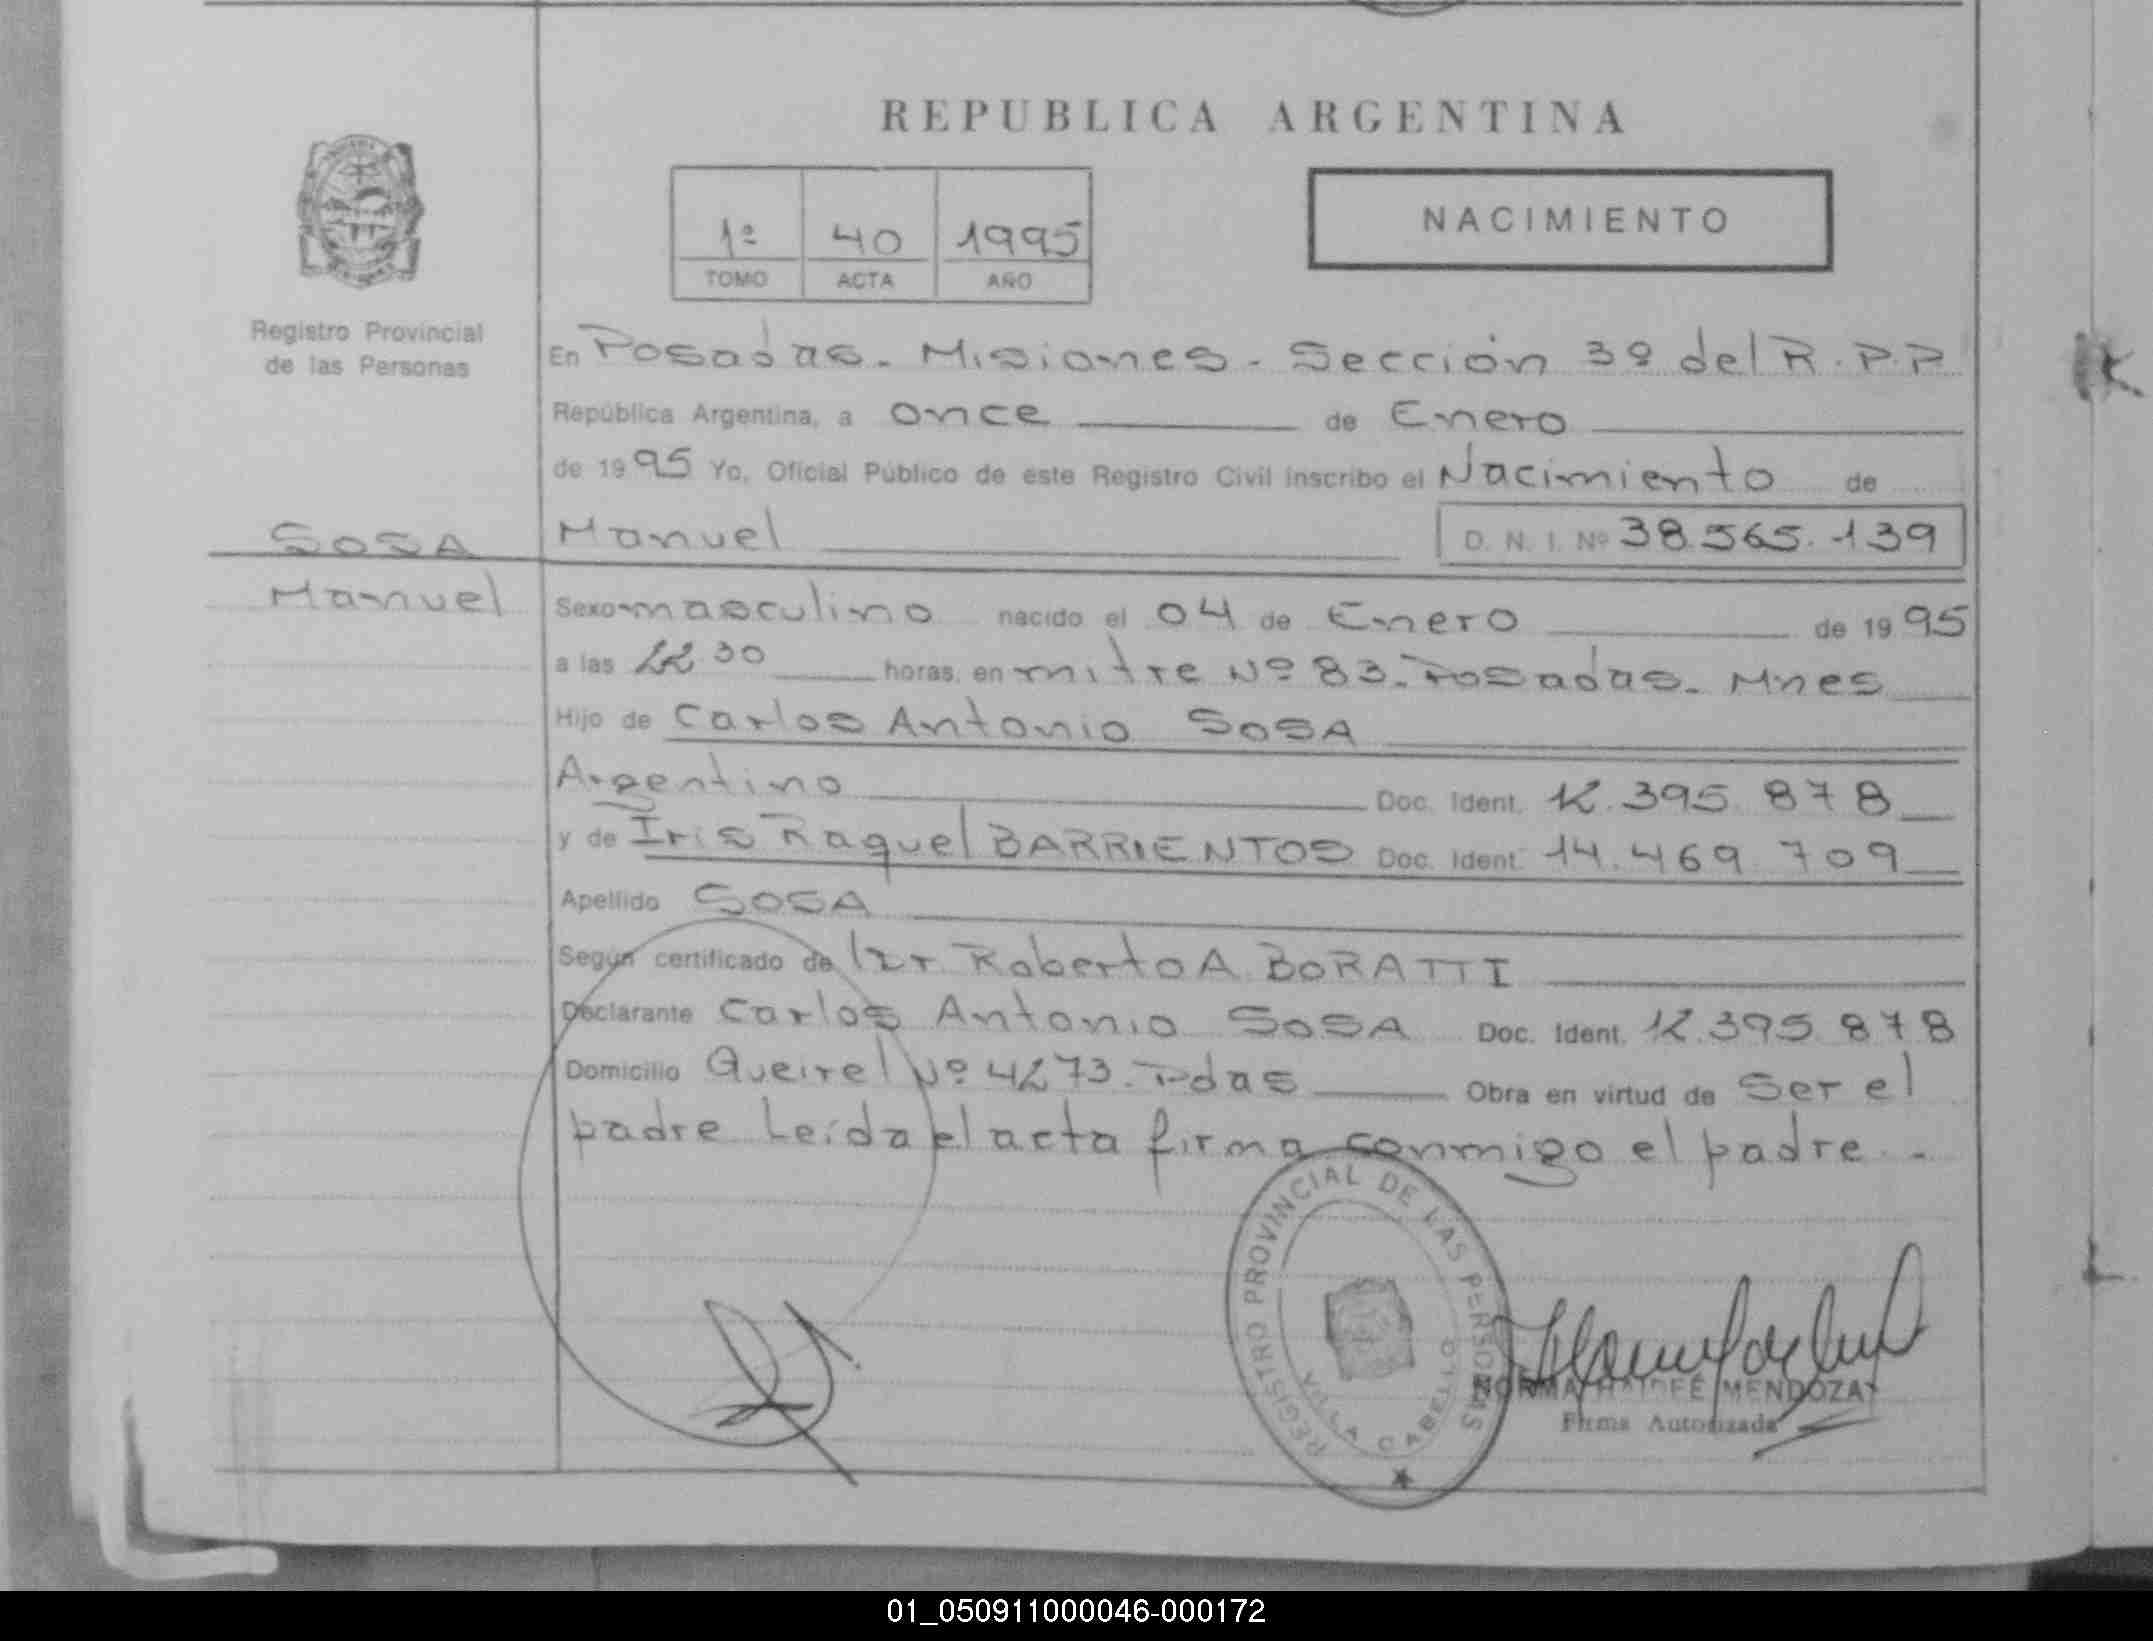 REPUBLICA ARGENTINA
1º 40 1995
TOMO ACTA AÑO
NACIMIENTO
Registro Provincial
de las Personas
En Posadas. Misiones. Sección 3º del R.P.P
República Argentina, a once de Enero
de 1995 Yo, Oficial Público de este Registro Civil inscribo el Nacimiento de
Manuel D. N. I. Nº 38.565.139
SOSA
Manuel
Sexo masculino nacido el 04 de Enero de 1995
a las 22.30 horas, en mitre Nº 83. Posadas. Mnes
Hijo de Carlos Antonio SOSA
Argentino Doc. Ident. 12.395.878
y de Iris Raquel BARRIENTOS Doc. Ident. 14.469.709
Apellido SOSA
Según certificado de Dr. Roberto A. BORATTI
Declarante Carlos Antonio SOSA Doc. Ident. 12.395.878
Domicilio Queirel Nº 4273. Pdas Obra en virtud de Ser el
padre. Leída el acta firma conmigo el padre.-
REGISTRO PROVINCIAL DE LAS PERSONAS
VILLA CABELLO
NORMA HAIDEÉ MENDOZA
Firma Autorizada
01_050911000046-000172